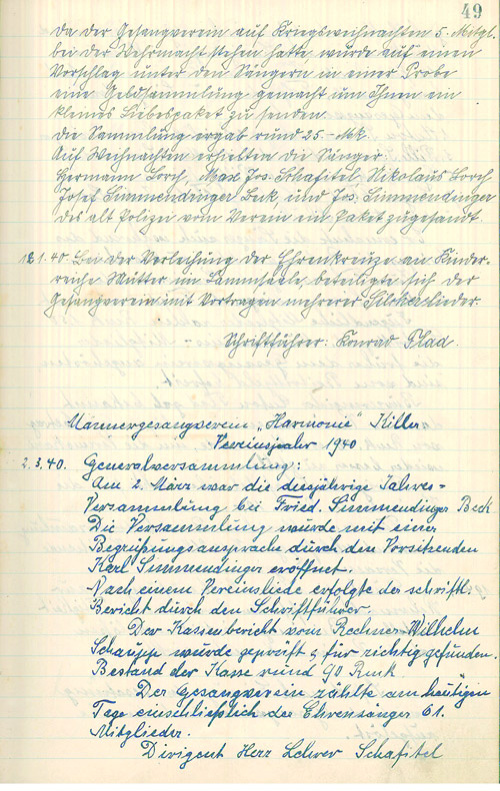 49
Da der Gesangverein auf Kriegsweihnachten 5. Mitgl.
bei der Wehrmacht stehen hatte, wurde auf einen
Vorschlag unter den Sängern in einer Probe
eine Geldsammlung gemacht um Ihnen ein
kleines Liebespaket zu senden.
Die Sammlung ergab rund 25.- Mk.
Auf Weihnachten erhielten die Sänger:
Hermann Lorch, Max Jos. Schafitel, Nikolaus Lorch
Josef Simmendinger Beck, und Jos. Simmendinger
des alt Polizei vom Verein ein Paket zugesandt.
1.40. Bei der Verleihung der Ehrenkreuze an Kinder-
reiche Mütter im Lammsaale, beteiligte sich der
Gesangverein mit Vortragen mehrerer lieder.
Schriftführer: Konrad Flad.
Männergesangverein „Harmonie" Killer
Vereinsjahr 1940
2.3.40. Generalversammlung:
Am 2. März war die diesjährige Jahres-
Versammlung bei Fried. Simmendinger Beck
Die Versammlung wurde mit einer
Begrüßungsansprache durch den Vorsitzenden
Karl Simmendinger eröffnet.
Nach einem Vereinsliede erfolgte der schriftl.
Bericht durch den Schriftführer.
Der Kassenbericht vom Rechner Wilhelm
Schaupp wurde geprüft & für richtig gefunden.
Bestand der Kasse rund 90 Rmk.
Der Gesangverein zählte am heutigen
Tage einschließlich der Ehrensänger 61.
Mitglieder.
Dirigent Herr Lehrer Schafitel